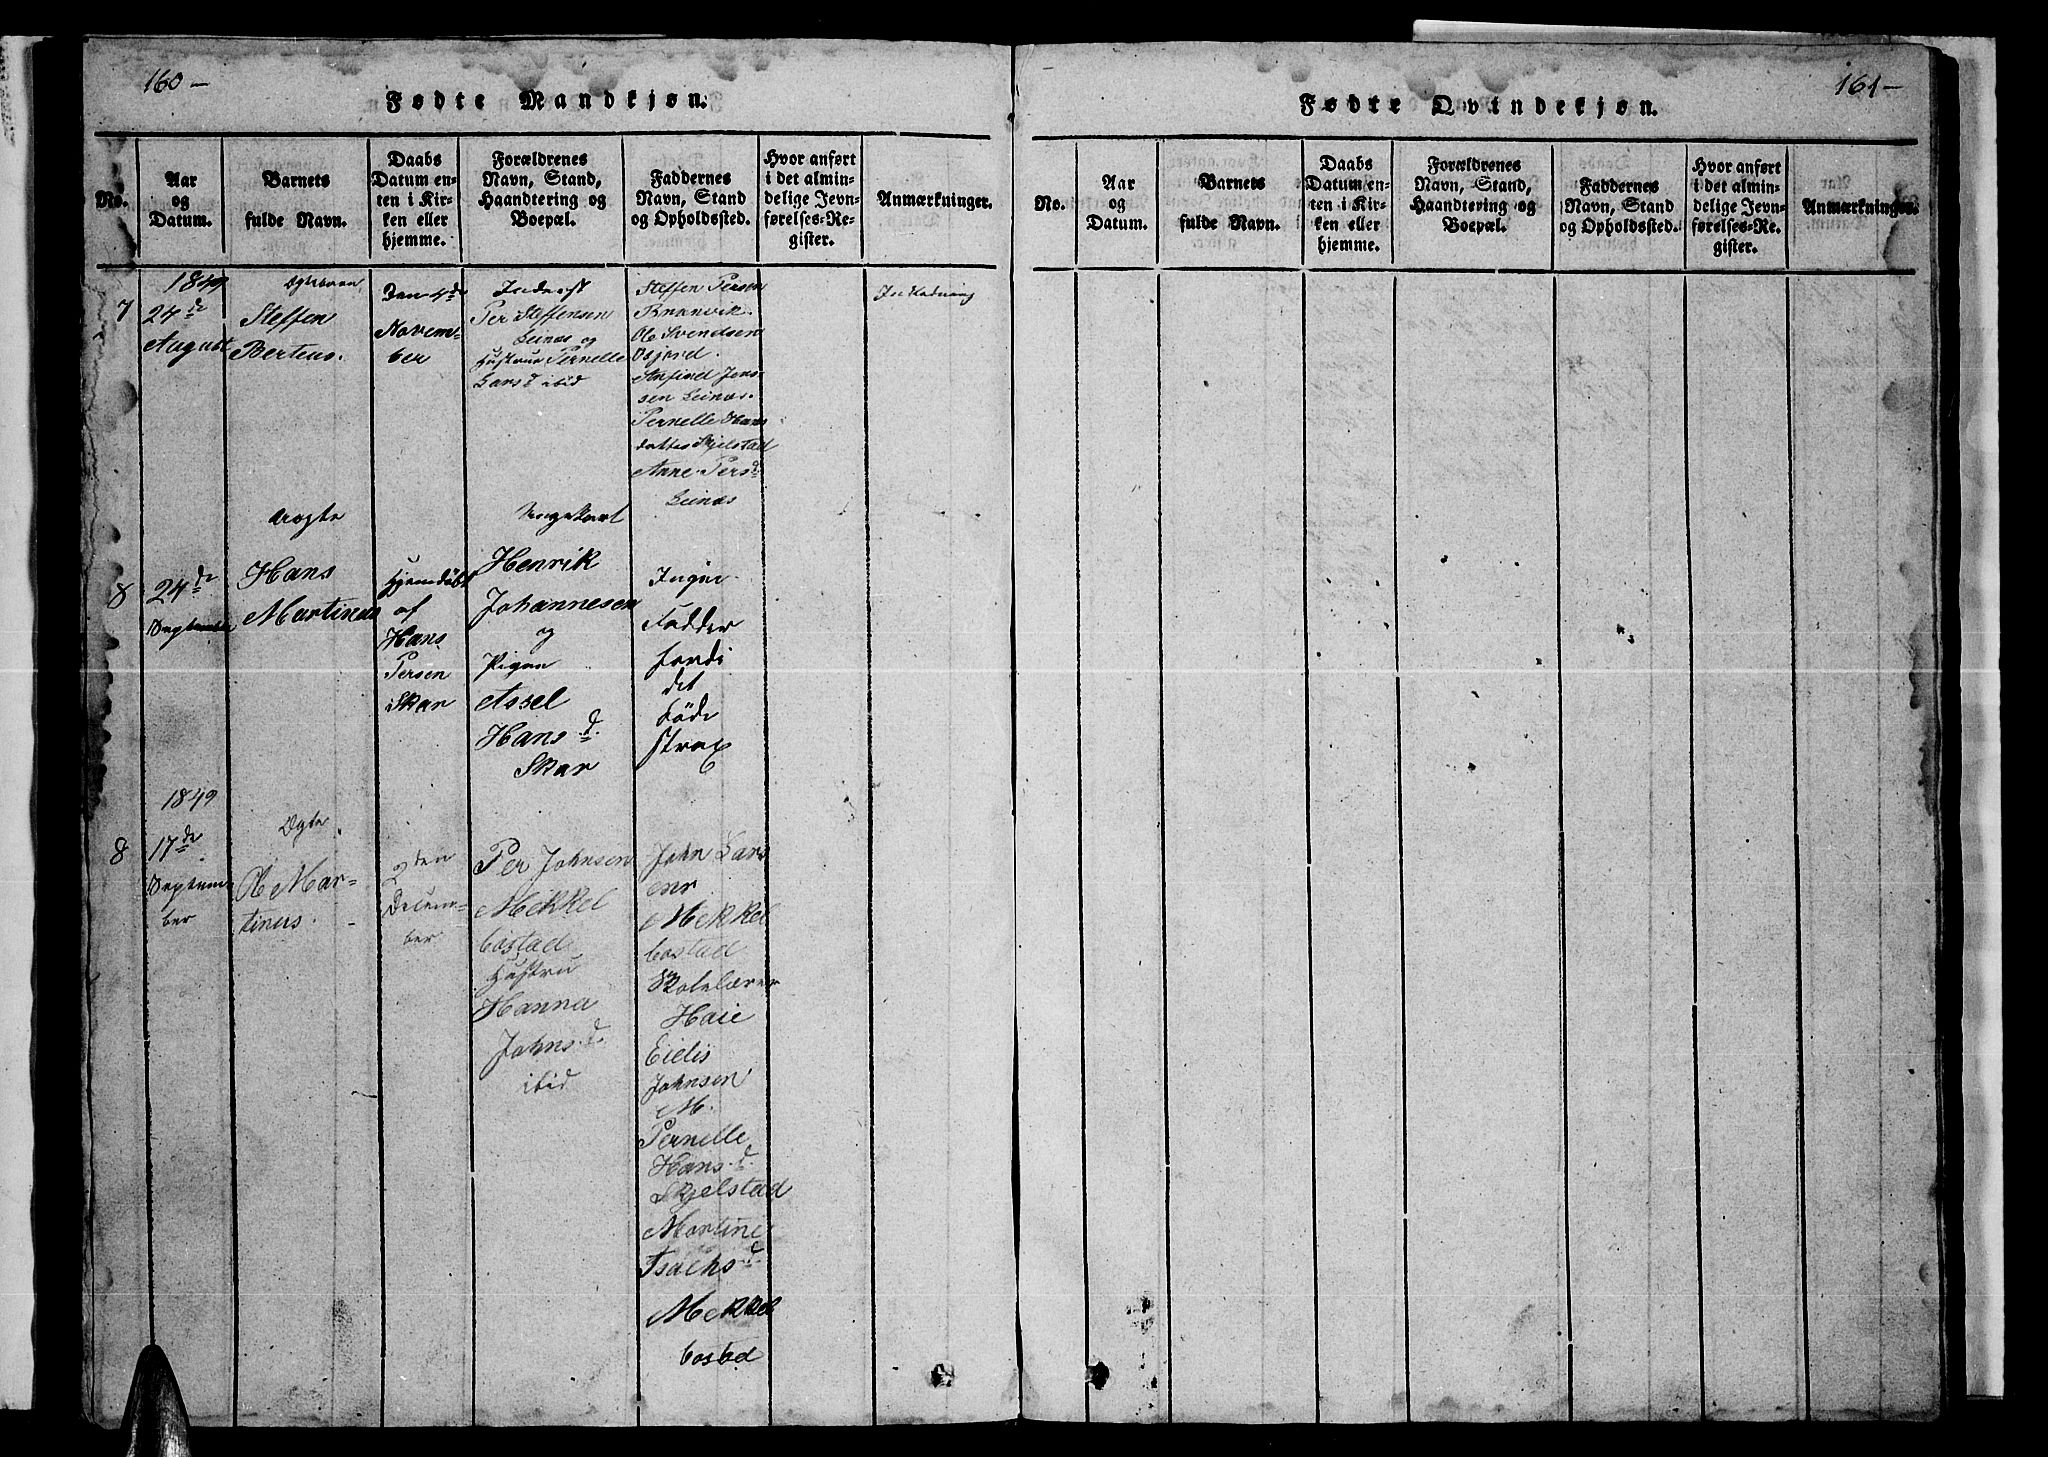 160 –
Fødte Mandkjøn.
No.
Aar
og
Datum.
Barnets
fulde Navn.
Daabs
Datum en-
ten i Kir-
ken eller
hjemme.
Forældrenes
Navn, Stand,
Haandtering og
Boepæl.
Faddernes
Navn, Stand
og Opholdssted.
Hvor anført
i det almin-
delige Jevn-
førelses-Re-
gister.
Anmærkninger.
7
1849
24de
August
Steffen
Berteus.
Den 4de
Novem-
ber
Inderst
Per Steffensen
Leines og
Hustrue Pernelle
Larsd ibid
Steffen Persen
Brunvik.
Ole Svendsen
Osjord.
Arnfind Jens-
sen Leines.
Pernelle Hans
datter Skjelstad
Anne Persd
Leines
8
24de
September
uægte
Hans
Martinus
Hjemdøbt
af
Hans
Persen
Skar
Ungekarl
Henrik
Johannesen
og
Pigen
Assel
Hans.d.
Skar
Ingen
Fadder
fordi
det
døde
strax
8
1849
17de
Septem-
ber
Ægte
Ole Mar-
tinus.
2den
Decem-
ber
Per Johnsen
Mekkel
bostad
Hustru
Hanna
Johns.d.
ibid
John Lars
enr
Mekkel
bostad
Skolelærer
Haie
Eielis
Johnsen
M.
Pernelle
Hans.d.
Skjelstad
Martine
Isachs d.
Mekkel
bostd
161 –
Fødte Qvindekjøn.
No.
Aar
og
Datum.
Barnets
fulde Navn.
Daabs
Datum en-
ten i Kir-
ken eller
hjemme.
Forældrenes
Navn, Stand,
Haandtering og
Boepæl.
Faddernes
Navn, Stand
og Opholdssted.
Hvor anført
i det almin-
delige Jevn-
førelses-Re-
gister.
Anmærkninger.